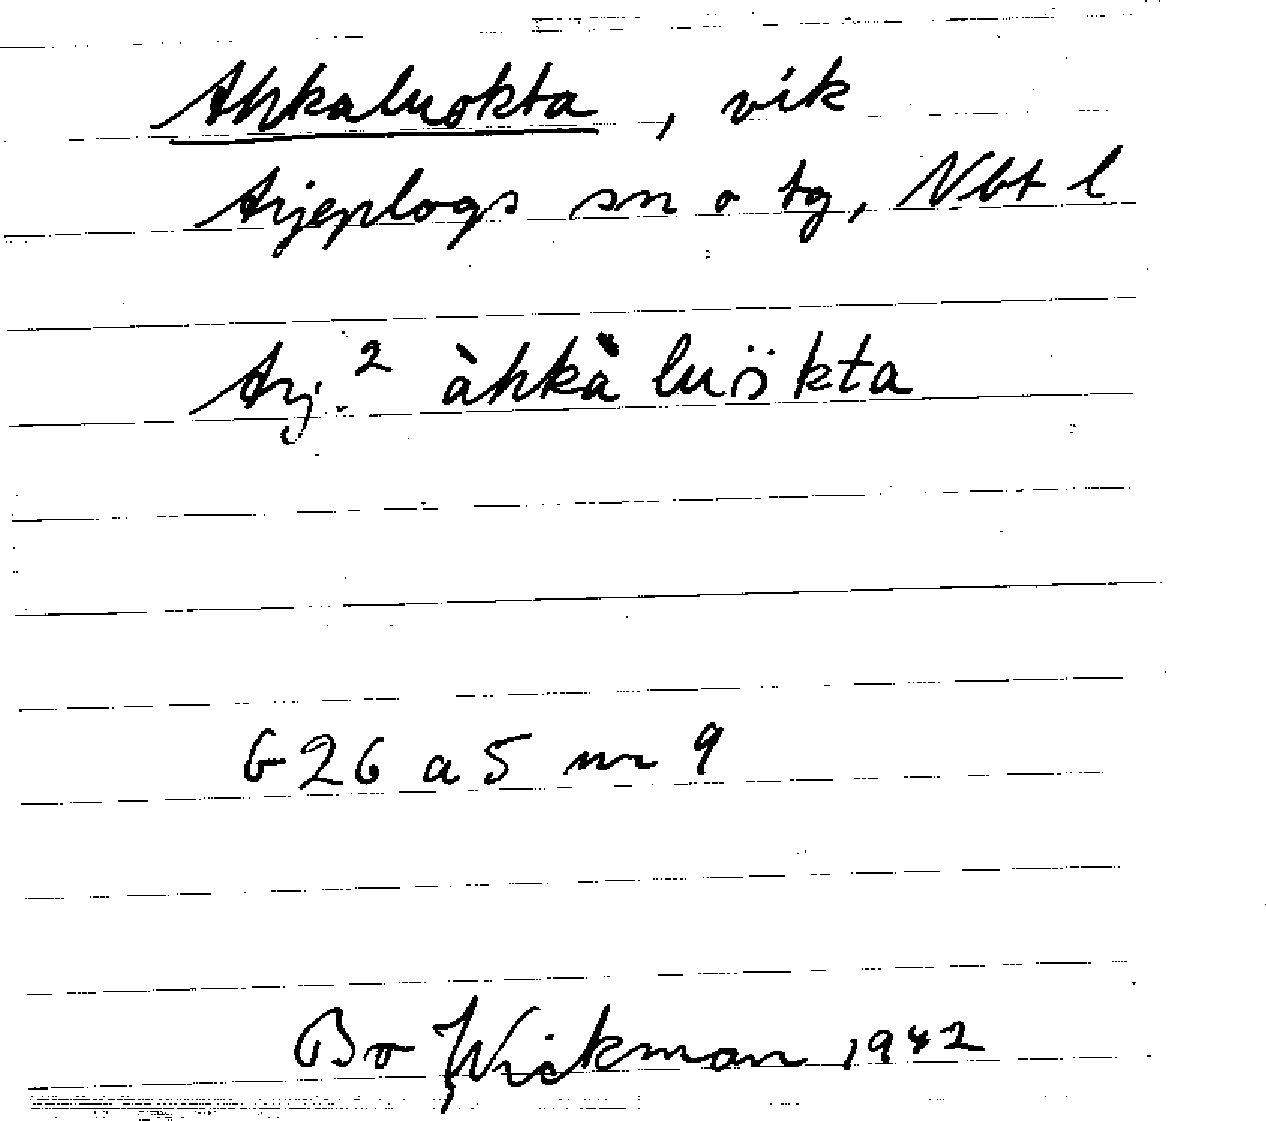 Ahkaluokta, vik
Arjeplogs sn o tg, Nbt l
Arj.² àhkà luökta
G26 a 5 nr 9
Bo Wickman 1942